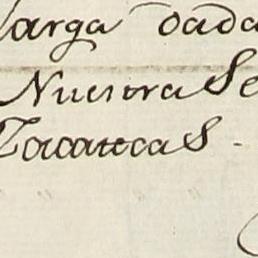 larga dada
Nuestra Se
Zacatecas.